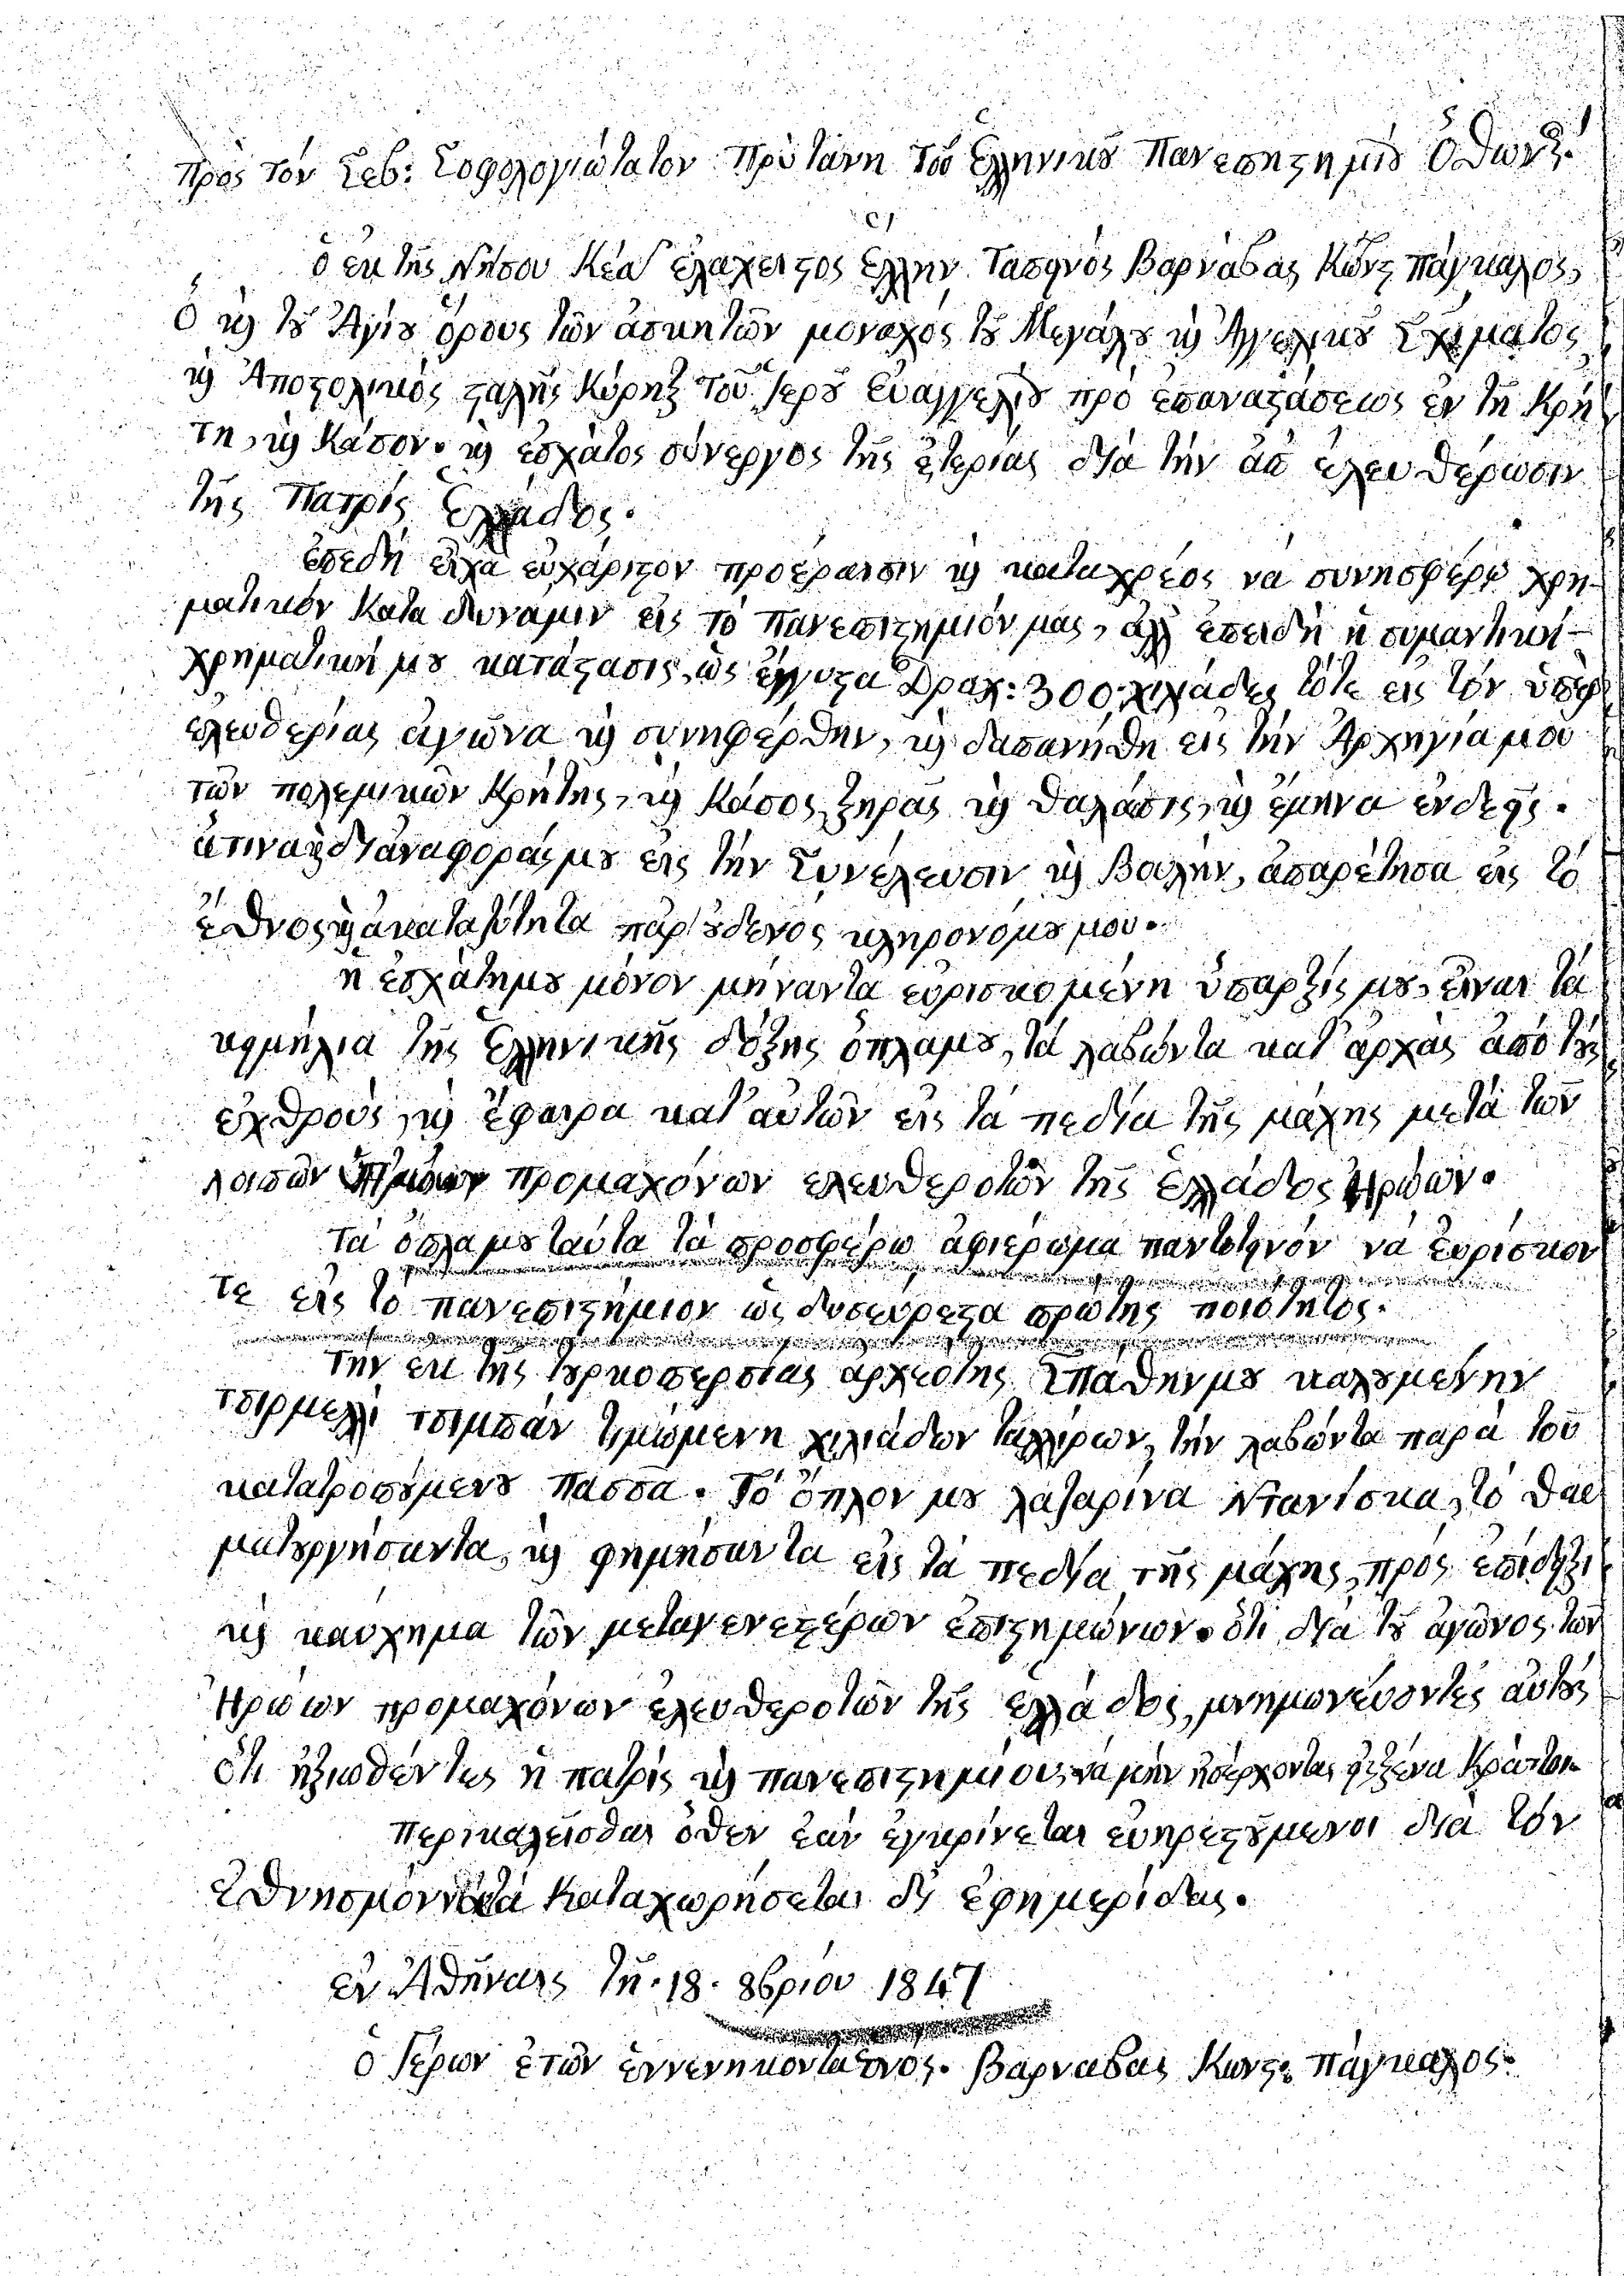 Πρὸς τόν Σεβ: Σοφολογιώτατον Πρύτανη τοῦ Ἑλληνικȣ͂ Πανεπιϛημίȣ Ὄθων:
ὁ ἐκ τῆς Νήσου Κέα ἐλάχειϛος Ἕλλην Ταπεινὸς Βαρνάβας Κώνϛ Πάγκαλος,
ὁ ϗ τȣ͂ Ἁγίȣ ὄρους τῶν ἀσκητῶν μοναχὸς τȣ͂ Μεγάλȣ ϗ Ἀγγελικȣ͂ Σχίματος
ϗ Ἀποϛολικὸς ϛαλῆς Κύρηξ τοῦ Ἱερȣ͂ Εὐαγγελίȣ πρὸ ἐπαναϛάσεως ἐν τῆ Κρή
τη, ϗ Κάσον. ϗ ἐσχάτος σύνεργος τῆς ἑτερίας διὰ τὴν ἀπ ἐλευθέρωσιν
τῆς Πατρίς Ἑλλάδος.
ἐπεδή εἶχα εὐχάριϛον προέραισιν ϗ καταχρέος νὰ συνησφέρω χρη-
ματικόν Κατα δυνάμιν εἰς τὸ Πανεπιϛημιόν μας, ἀλλ ἐπειδὴ ἡ συμαντική
χρηματική μȣ κατάϛασις, ὡς ἔγγυϛα Δραχ: 300 χιλιάδες τότε εἰς τόν ὑπὲρ
ἐλευθερίας ἀγῶνα ϗ συνηφέρθην, ϗ δαπανήθη εἰς τὴν Ἀρχηγία μου
τῶν πολεμικῶν Κρήτης, ϗ Κάσος ξηρᾶς ϗ θαλάσις, ϗ ἔμηνα ἐνδεής.
ἅτινα ϗ δι ἀναφοράς μȣ εἰς τήν Συνέλευσιν ϗ Βουλήν, ἀπαρέτησα εἰς τὸ
ἔθνος ϗ ἀκαταζήτητα παρ ȣδενὸς κληρονόμȣ μου.
ἡ ἐσχάτη μȣ μόνον μήναντα εὑρισκομένη ὕπαρξίς μȣ, εἶναι τὰ
κειμήλια τῆς Ἑλληνικῆς δόξης ὅπλα μȣ, τὰ λαβώντα κατ ἀρχὰς ἀπὸ τȣ̀ς
ἐχθροὺς, ϗ ἔφαιρα κατ αὐτῶν εἰς τὰ πεδία τῆς μάχης μετὰ τῶν
λοιπῶν προμαχόνων ἐλευθεροτῶν τῆς Ἑλλάδος Ἡρώων.
Τὰ ὅπλα μȣ ταῦτα τὰ προσφέρω ἀφιέρωμα παντοτηνόν νὰ εὑρίσκον
τε εἰς τὸ πανεπιϛήμιον ὡς δυσεύρεϛα πρώτης ποιότητος.
Τὴν ἐκ τῆς τȣρκοπερσίας ἀρχεότης Σπάθην μȣ καλȣμένην
τσιρμελλὶ τσιμπάν τιμώμενη χιλιάδων ταλλίρων, τὴν λαβώντα παρὰ τοῦ
κατατροπȣμένȣ Πασσᾶ. Τὸ ὅπλον μȣ λαζαρίνα Ντανίσκα, τὸ θαε
ματȣργήσαντα, ϗ φημήσαντα εἰς τὰ πεδία τῆς μάχης, πρὸς ἐπίδηξι
ϗ καύχημα τῶν μεταγενεϛέρων ἐπιϛημώνων. ὅτι διὰ τȣ͂ ἀγῶνος τῶν
Ἡρώων προμαχόνων ἐλευθεροτῶν τῆς Ἑλλάδος, μνημονεύοντες αὐτȣ̀ς
ὅτι ἠξιωθέντες ἡ πατρὶς ϗ πανεπιϛημίους νὰ μὴν ἠσέρχονται ξένα Κράτοι
Περικαλεῖσθαι ὅθεν ἐάν ἐγκρίνεται εὐηρεϛȣ́μενοι διὰ τόν
ἐθνησμόν Καταχωρήσεται δι ἐφημερίδας.
ἐν Ἀθήναις τῆ. 18. 8βρίου 1847
ὁ Γέρων ἐτῶν ἐννενήκοντα Βαρνάβας Κωνϛ: Πάγκαλος.